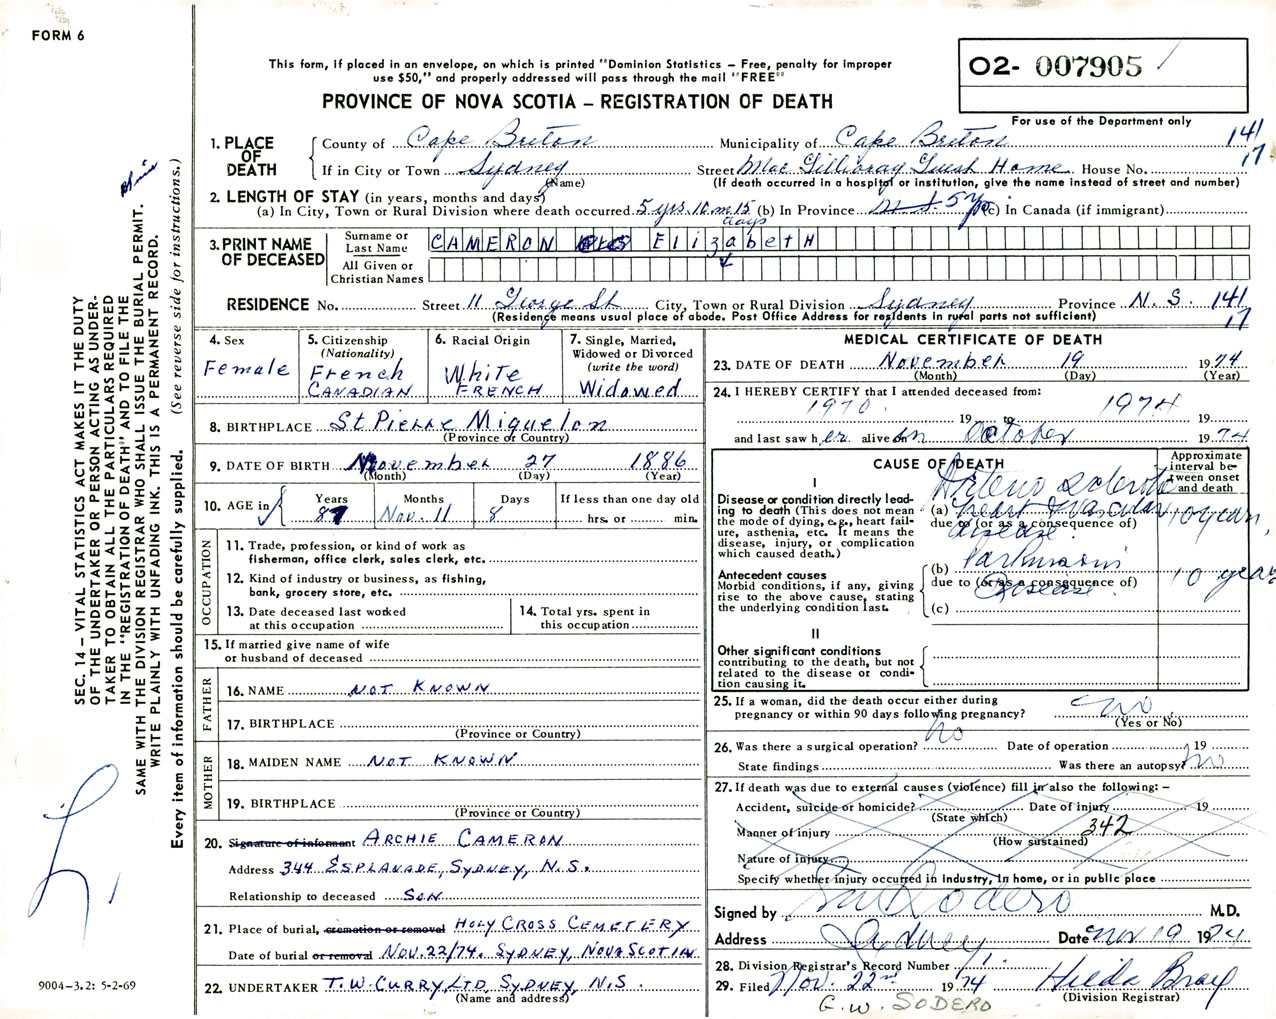 FORM 6
This form, if placed in an envelope, on which is printed "Dominion Statistics – Free, penalty for improper
use $50," and properly addressed will pass through the mail "FREE"
PROVINCE OF NOVA SCOTIA – REGISTRATION OF DEATH
02- 007905
For use of the Department only
1. PLACE OF DEATH
County of Cape Breton Municipality of Cape Breton 141
If in City or Town Sydney Street Mac Gillivray Guest Home House No. 17
(Name) (If death occurred in a hospital or institution, give the name instead of street and number)
2. LENGTH OF STAY (in years, months and days)
(a) In City, Town or Rural Division where death occurred 5 yrs 10 m 15 days (b) In Province (c) In Canada (if immigrant)
3. PRINT NAME OF DECEASED
Surname or Last Name CAMERON Elizabeth
All Given or Christian Names
RESIDENCE No. Street 11 George St City, Town or Rural Division Sydney Province N.S. 141
(Residence means usual place of abode. Post Office Address for residents in rural parts not sufficient) 17
4. Sex
Female
5. Citizenship
(Nationality)
French
CANADIAN
6. Racial Origin
White
FRENCH
7. Single, Married,
Widowed or Divorced
(write the word)
Widowed
8. BIRTHPLACE St Pierre Miquelon
(Province or Country)
9. DATE OF BIRTH November 27 1886
(Month) (Day) (Year)
10. AGE in
Years Months Days If less than one day old
87 Nov. 11 8 hrs. or min.
OCCUPATION
11. Trade, profession, or kind of work as
fisherman, office clerk, sales clerk, etc.
12. Kind of industry or business, as fishing,
bank, grocery store, etc.
13. Date deceased last worked
at this occupation
14. Total yrs. spent in
this occupation
15. If married give name of wife
or husband of deceased
FATHER
16. NAME NOT KNOWN
17. BIRTHPLACE
(Province or Country)
MOTHER
18. MAIDEN NAME NOT KNOWN
19. BIRTHPLACE
(Province or Country)
20. Signature of informant ARCHIE CAMERON
Address 344 ESPLANADE, SYDNEY, N.S.
Relationship to deceased SON
21. Place of burial, cremation or removal HOLY CROSS CEMETERY
Date of burial or removal NOV. 22/74. SYDNEY, NOVA SCOTIA
22. UNDERTAKER T.W. CURRY, LTD, SYDNEY, N.S.
(Name and address)
MEDICAL CERTIFICATE OF DEATH
23. DATE OF DEATH November 19 1974
(Month) (Day) (Year)
24. I HEREBY CERTIFY that I attended deceased from:
1970 19 to 1974 19
and last saw her alive on October 1974
CAUSE OF DEATH
Approximate
interval between
onset
and death
I
Disease or condition directly leading
to death (This does not mean
the mode of dying, e.g., heart failure,
asthenia, etc. It means the
disease, injury, or complication
which caused death.)
Arterio sclerotic
(a) heart & vascular 10 years
due to (or as a consequence of)
disease
Antecedent causes
Morbid conditions, if any, giving
rise to the above cause, stating
the underlying condition last.
(b) Parkinson's 10 years
due to (or as a consequence of)
Disease
(c)
II
Other significant conditions
contributing to the death, but not
related to the disease or condition
causing it.
25. If a woman, did the death occur either during
pregnancy or within 90 days following pregnancy? no
(Yes or No)
26. Was there a surgical operation? no Date of operation 19
State findings Was there an autopsy? no
27. If death was due to external causes (violence) fill in also the following: –
Accident, suicide or homicide? Date of injury 19
(State which)
Manner of injury 342
(How sustained)
Nature of injury
Specify whether injury occurred in industry, in home, or in public place
Signed by Sodero M.D.
Address Sydney Date Nov 19 1974
28. Division Registrar's Record Number
29. Filed Nov. 22nd 1974 Hilda Bray
(Division Registrar)
G.W. SODERO
SEC. 14 – VITAL STATISTICS ACT MAKES IT THE DUTY
OF THE UNDERTAKER OR PERSON ACTING AS UNDERTAKER
TO OBTAIN ALL THE PARTICULARS REQUIRED
IN THE "REGISTRATION OF DEATH" AND TO FILE THE
SAME WITH THE DIVISION REGISTRAR WHO SHALL ISSUE THE BURIAL PERMIT.
WRITE PLAINLY WITH UNFADING INK. THIS IS A PERMANENT RECORD.
Every item of information should be carefully supplied. (See reverse side for instructions.)
9004-3.2: 5-2-69